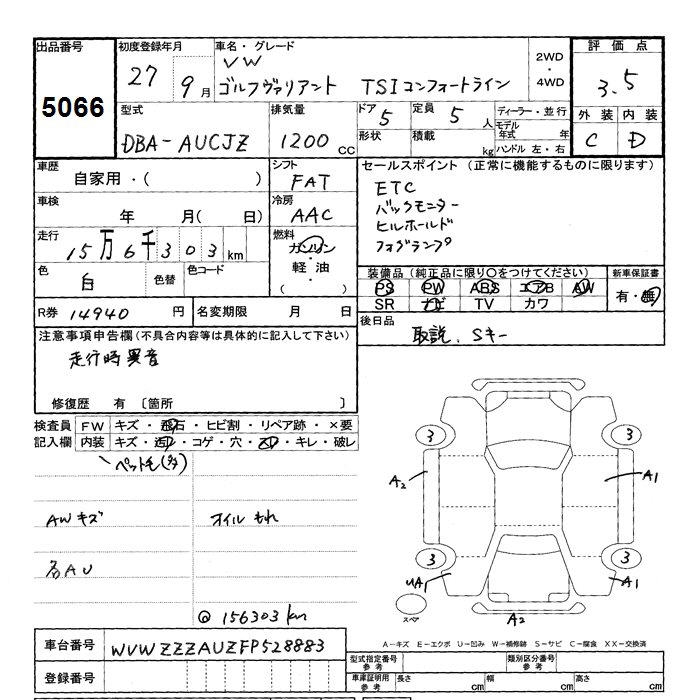 出品番号 5066
初度登録年月 27 9月
車名・グレード VW
ゴルフヴァリアント TSIコンフォートライン
2WD ・ 4WD
評価点 3.5
型式 DBA-AUCJZ
排気量 1200 CC
ドア 5
定員 5 人
形状
積載 kg
ディーラー・並行
モデル年式 年
ハンドル 左・右
外装 C
内装 D
車歴 自家用・( )
シフト FAT
車検 年 月( 日)
冷房 AAC
走行 15万6千303km
燃料 ガソリン・軽油
色 白
色替
色コード
セールスポイント (正常に機能するものに限ります)
ETC
バックモニター
ヒルホールド
フォグランプ
装備品(純正品に限り○をつけてください)
PS PW ABS エアB AW
SR ナビ TV カワ
新車保証書 有・無
R券 14940 円
名変期限 月 日
後日品 取説、Sキー
注意事項申告欄(不具合内容等は具体的に記入して下さい)
走行時異音
修復歴 有〔箇所 〕
検査員記入欄
FW キズ・飛石・ヒビ割・リペア跡・×要
内装 キズ・・コゲ・穴・・キレ・破レ
ペット毛(多)
AWキズ オイルもれ
各AU
@ 156303 km
3 3
A2 A1
3 3
UA1 A1
スペア
A2
A−キズ E−エクボ U−凹み W−補修跡 S−サビ C−腐食 XX−交換済
車台番号 WVWZZZAUZFP528883
登録番号
型式指定番号 参考
類別区分番号 参考
車庫証明用 参考 長さ cm 幅 cm 高さ cm